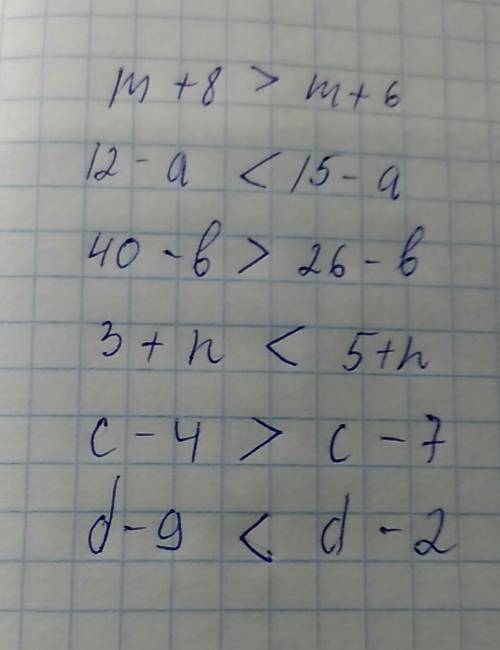 m + 8 > m + 6
12 - a < 15 - a
40 - в > 26 - в
3 + n < 5 + n
c - 4 > c - 7
d - 9 < d - 2